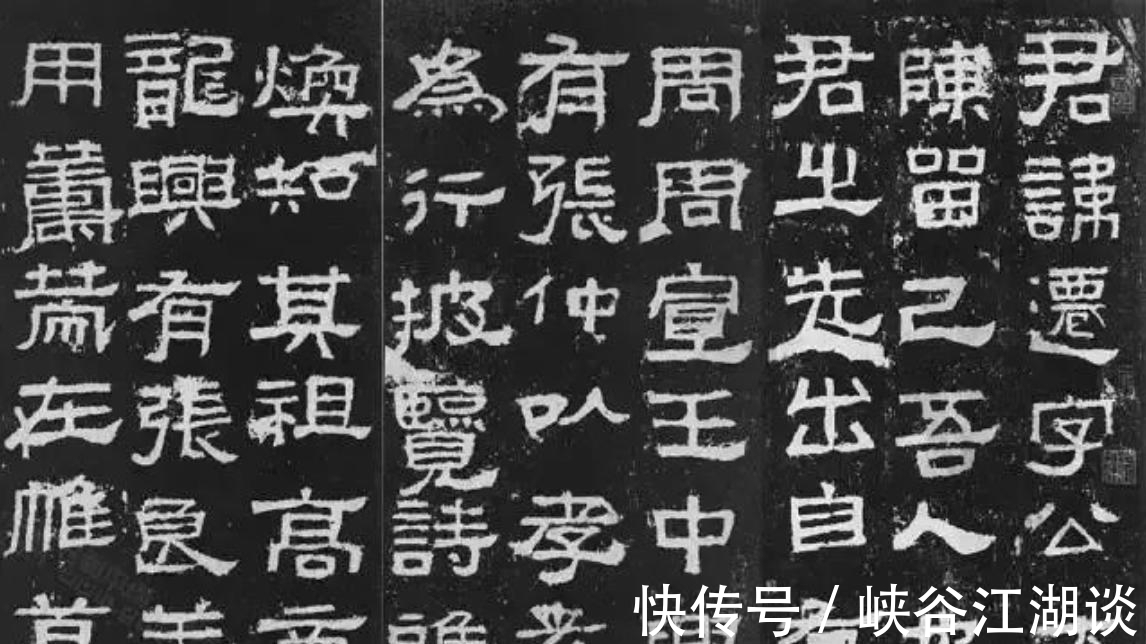 君諱遷字公
陳留己吾人
君之先出自
周周宣王中
有張仲以孝
為行披覽詩
煥知其祖高
龍興有張良
用籌策在帷
快传号 / 峡谷江湖谈